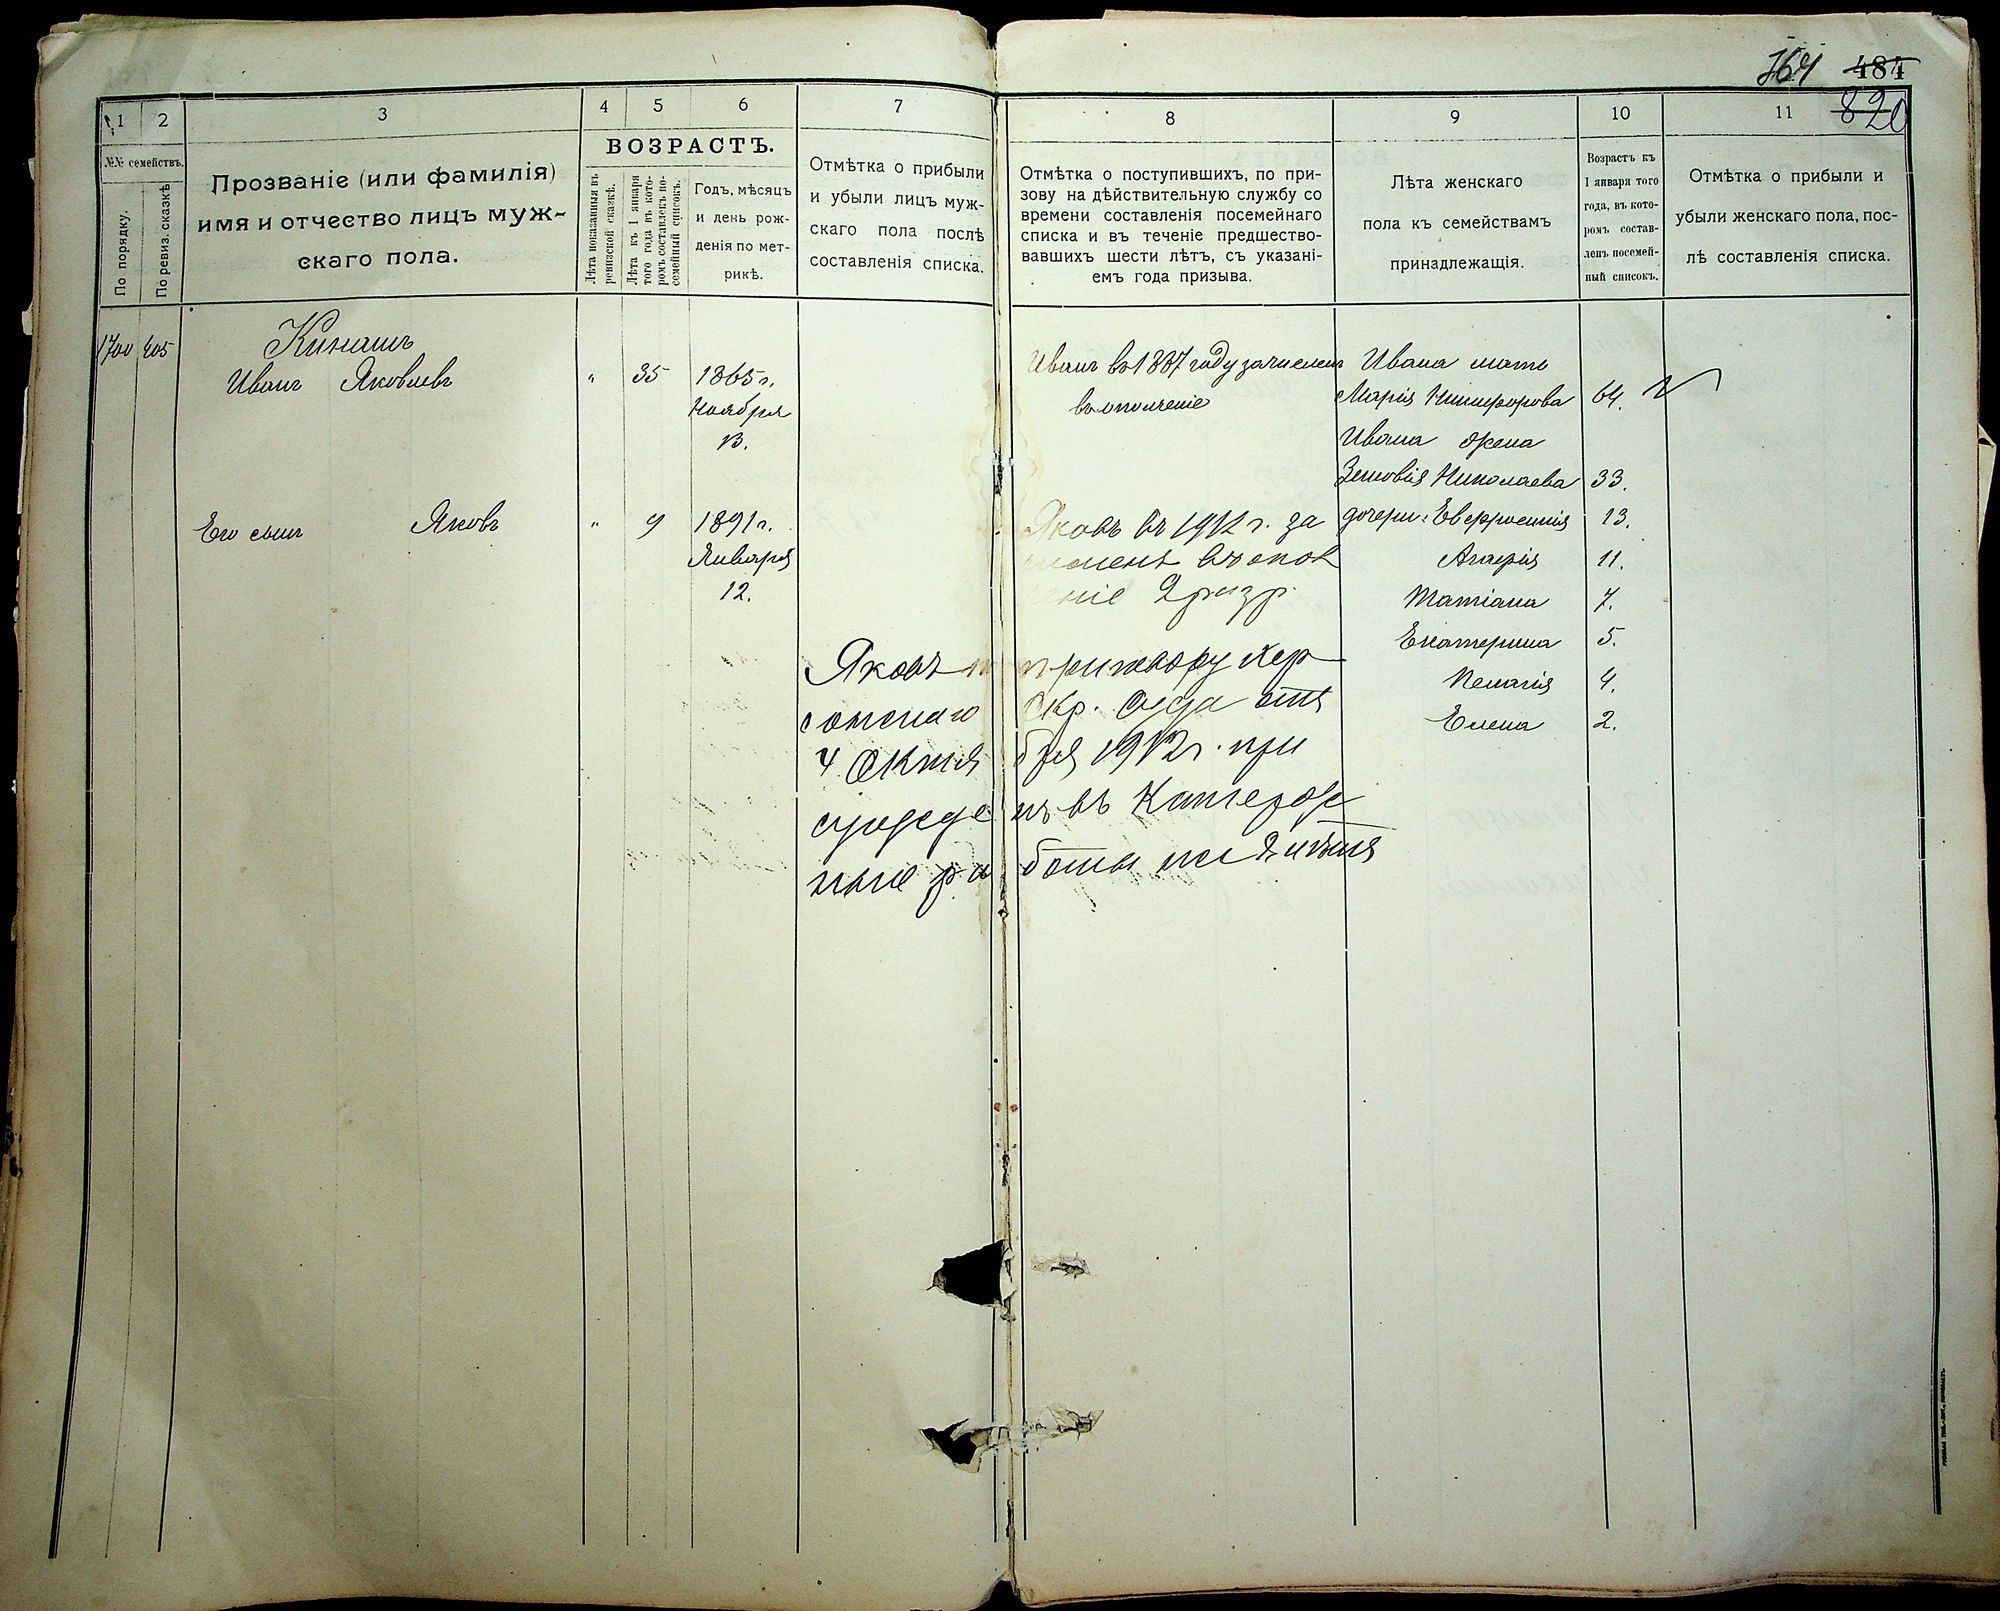 764 484
820
1 2 3 4 5 6 7
№№ семействъ.
По порядку.
По ревиз. сказкѣ
Прозваніе (или фамилія)
имя и отчество лицъ муж-
скаго пола.
ВОЗРАСТЪ.
Лѣта показанныя въ
ревизской сказкѣ.
Лѣта къ 1 января
того года въ кото-
ромъ составлекъ по-
семейный списокъ.
Годъ, мѣсяцъ
и день рож-
денія по мет-
рикѣ.
Отмѣтка о прибыли
и убыли лицъ муж-
скаго пола послѣ
составленія списка.
8 9 10 11
Отмѣтка о поступившихъ, по при-
зову на дѣйствительную службу со
времени составленія посемейнаго
списка и въ теченіе предшество-
вавшихъ шести лѣтъ, съ указані-
емъ года призыва.
Лѣта женскаго
пола къ семействамъ
принадлежащія.
Возрастъ къ
1 января того
года, въ кото-
ромъ состав-
ленъ посемей-
ный список.
Отмѣтка о прибыли и
убыли женскаго пола, пос-
лѣ составленія списка.
1700 405 Кинашъ
Иванъ Яковлевъ " 35 1865 г.
Ноября
13.
Иванъ въ 1887 году зачисленъ
въ ополченіе
Ивана мать
Марія Никифорова 64.
Ивана жена
Зеновія Николаева 33.
Его сынъ Яковъ " 9 1891 г.
Января
12.
Яковъ въ 1912 г. за
численъ въ опол
ченіе 2 разр.
дочери: Евфросинія 13.
Агафія 11.
Татіана 7.
Екатерина 5.
Пелагія 4.
Елена 2.
Яковъ по приговору Хер
сонскаго Окр. Суда отъ
4 Октя бря 1912 г. при
сужде нъ въ Каторж
ные ра боты на лѣтъ